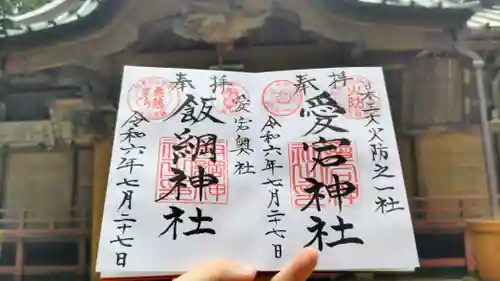 日本三大火防之一社
奉拝
愛宕神社
令和六年七月二十七日
愛宕奥社
奉拝
飯綱神社
令和六年七月二十七日